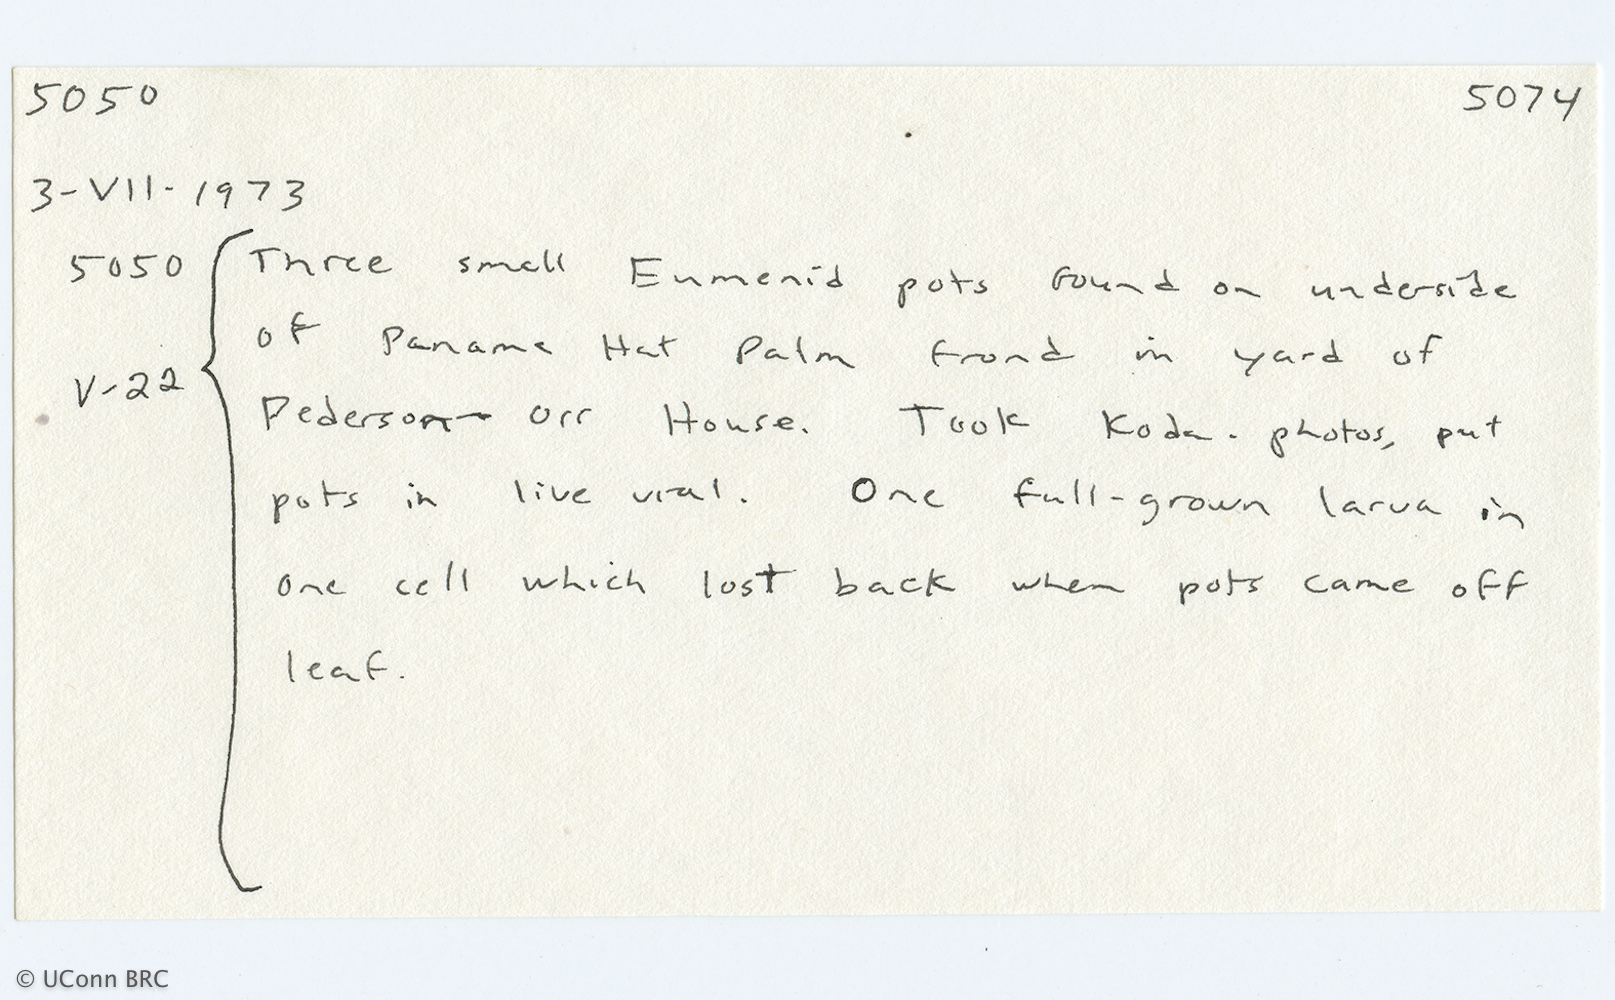 5050 5074
3-VII-1973
5050 Three small Eumenid pots found on underside
of Panama Hat Palm frond in yard of
V-22
Pederson-Orr House. Took Koda. photos, put
pots in live vial. One full-grown larva in
one cell which lost back when pots came off
leaf.
© UConn BRC